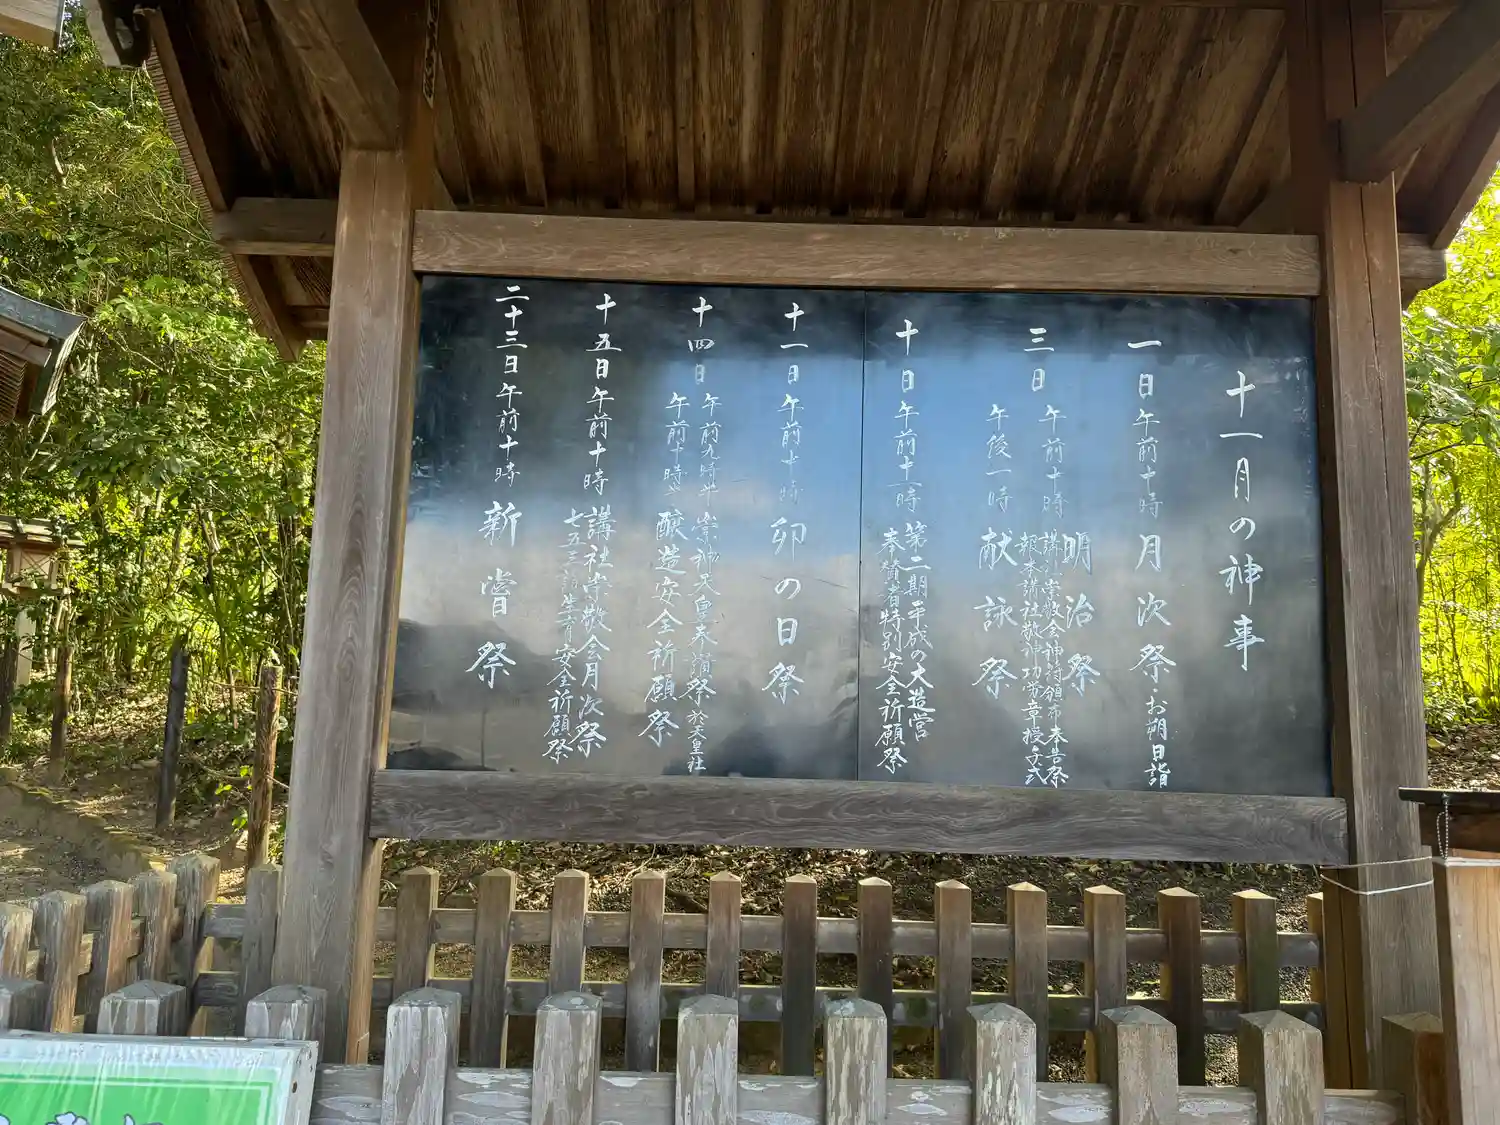 十一月の神事
一日午前十時 月次祭・お朔日詣
三日 午前十時 明治祭
講社崇敬会神符頒布奉告祭
報本講社敬神功労章授与式
午後一時 献詠祭
十日午前十一時 第二期平成の大造営
奉賛者特別安全祈願祭
十一日午前十時 卯の日祭
十四日 午前九時半 崇神天皇奉賛祭 於天皇社
午前十時半 醸造安全祈願祭
十五日午前十時 講社崇敬会月次祭
七五三詣生育安全祈願祭
二十三日午前十時 新嘗祭